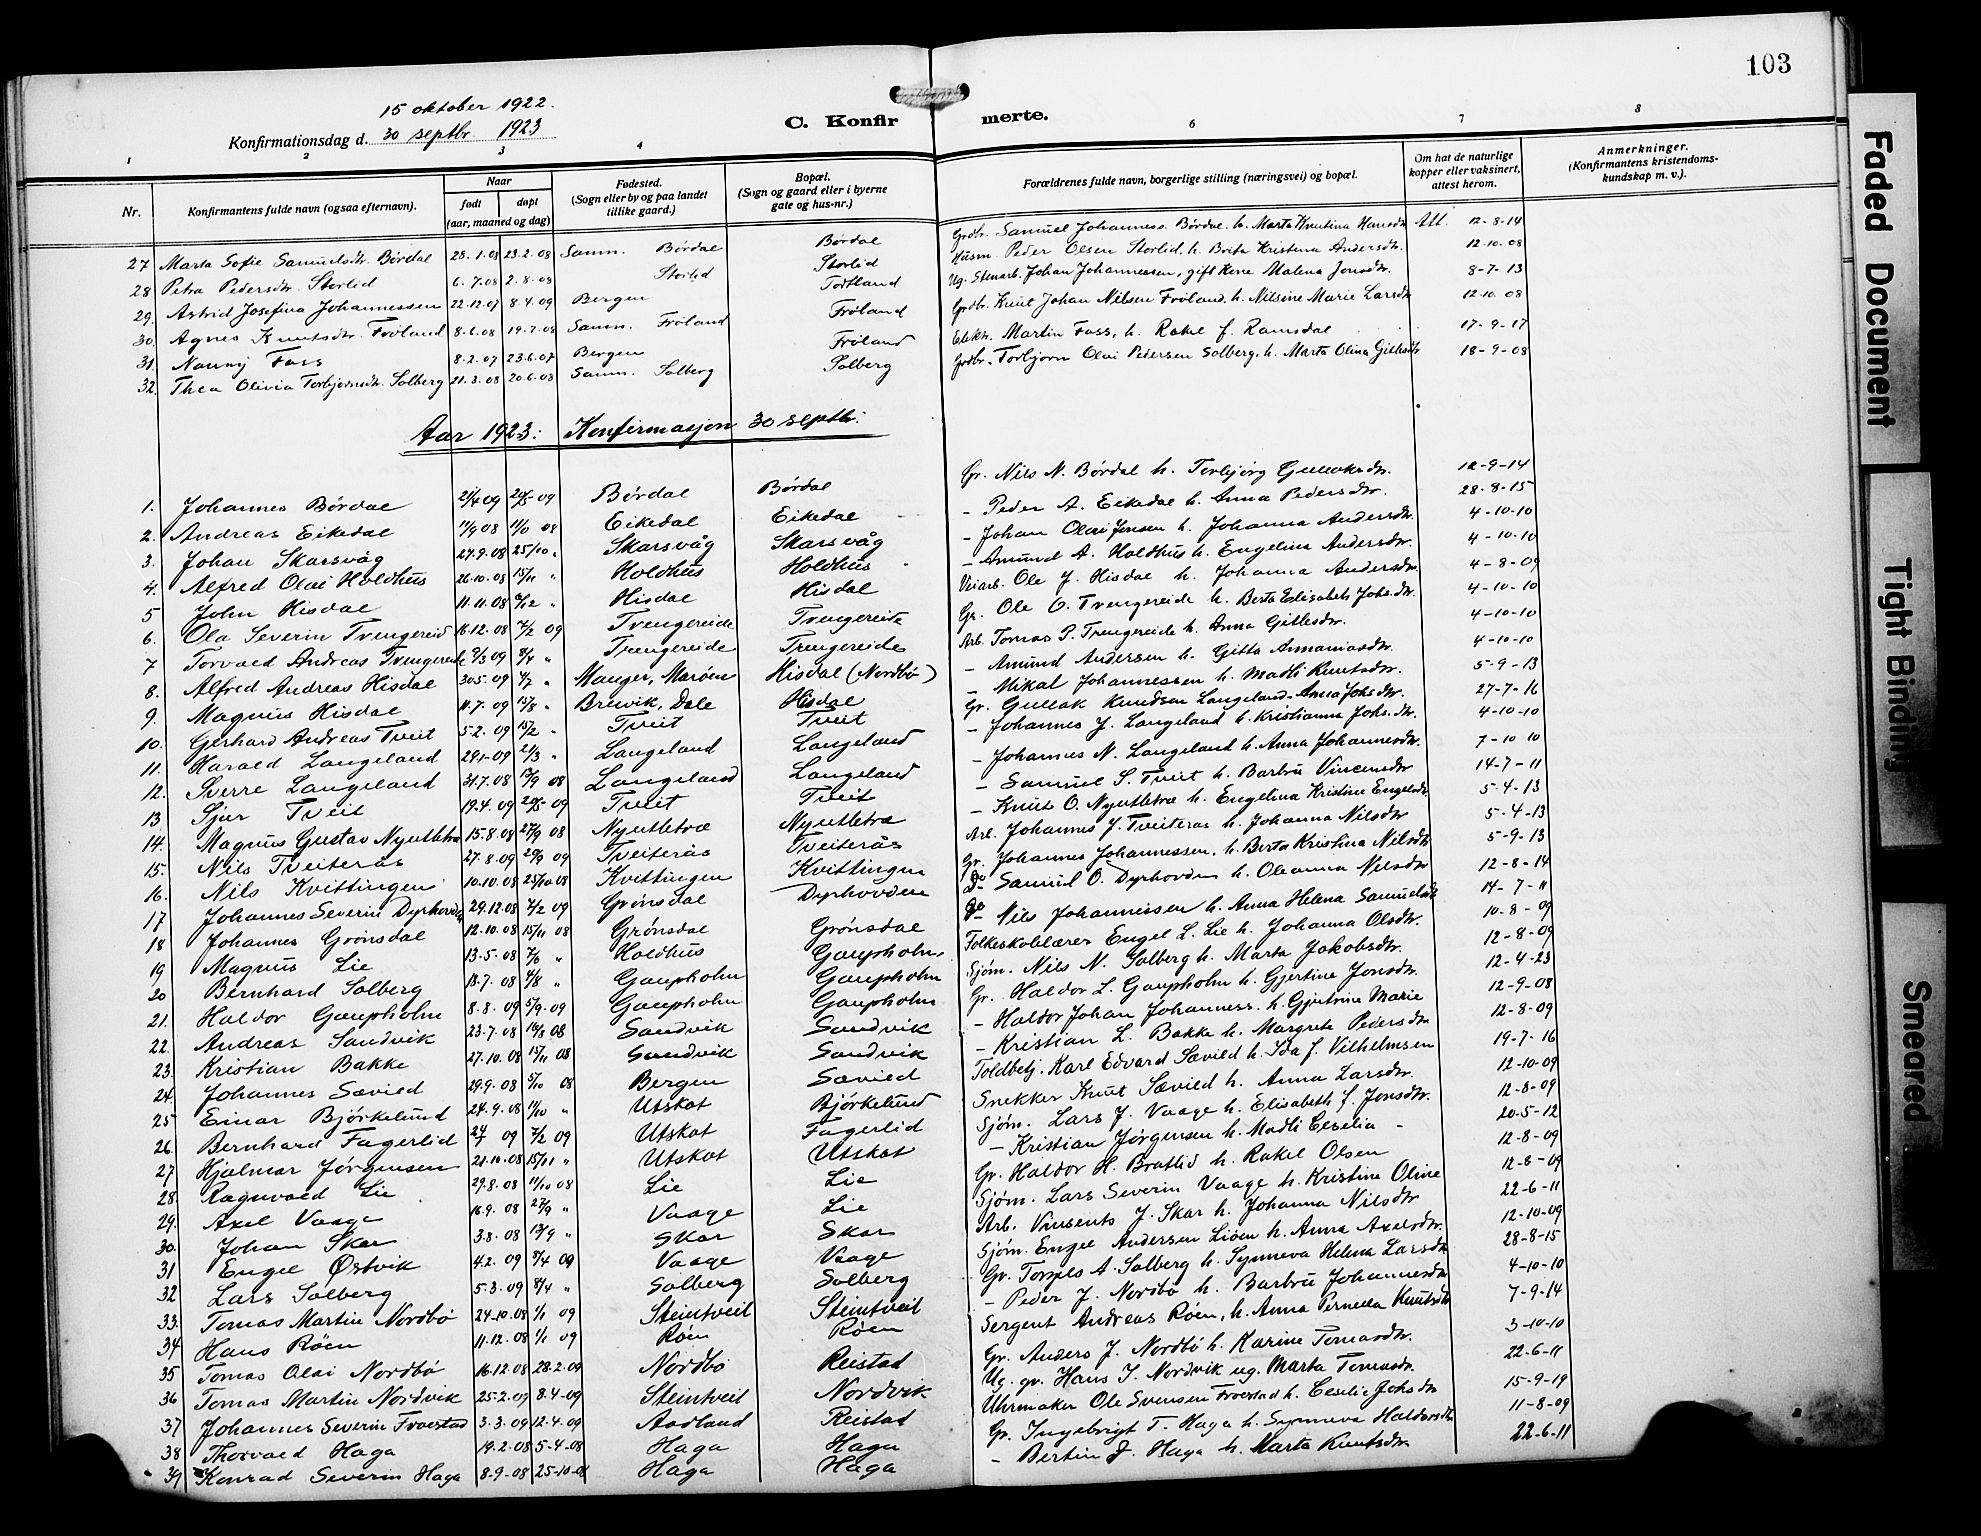 103
15 oktober 1922.
Konfirmationsdag d. 30 septbr 1923
C. Konfirmerte.
1 2 3 4 6 7 8
Nr. Konfirmantens fulde navn (ogsaa efternavn). Naar født døpt (aar, maaned og dag) Fødested. (Sogn eller by og paa landet tillike gaard.) Bopæl. (Sogn og gaard eller i byerne gate og hus-nr.) Forældrenes fulde navn, borgerlige stilling (næringsvei) og bopæl. Om hat de naturlige kopper eller vaksinert, attest herom. Anmerkninger. (Konfirmantens kristendoms- kundskap m. v.).
27 Marta Sofie Samuelsdtr. Børdal 23.1.08 23.2.08 Samn. Børdal Børdal Grdbr. Samuel Johanness. Børdal h. Marta Knutina Hansdtr Att. 12-8-14
28 Petra Pedersdtr. Storlid 6.7.08 2.8.08 Storlid Storlid Husm. Peder Olsen Storlid, h. Brita Kristina Andersdtr. 12.10.08
29. Astrid Josefina Johannessen 22.12.07 8.4.09 Bergen Todtland Ug. Stenarb. Johan Johannessen, gift Kone Malena Jonsdtr. 8-7-13
30. Agnes Knutsdtr. Frøland 8.6.08 19.7.08 Samn. Frøland Frøland Grdbr. Knut Johan Nilsen Frøland, h. Nilsine Marie Larsdtr 12.10.08
31. Nanny Foss 8.2.07 23.6.07 Bergen Frøland Elektr. Martin Foss, h. Rakel f. Ramsdal 17-9-17
32. Thea Olivia Torbjørnsdtr. Solberg 21.3.08 20.6.08 Samn. Solberg Solberg Grdbr. Torbjørn Olai Pedersen Solberg, h. Marta Olina Gitlesdtr 18-9-08
Aar 1923: Konfirmasjon 30 septbr.
1. Johannes Børdal 21/4 09 20/5 09 Børdal Børdal Gr. Nils N. Børdal h. Torbjørg Gullaksdtr. 12-9-14
2. Andreas Eikedal 11/9 08 11/10 08 Eikedal Eikedal - Peder A. Eikedal h. Anna Pedersdtr. 28-8-15
3. Johan Skarsvåg 27.9.08 25/10 " Skarsvåg Skarsvåg - Johan Olai Jensen h. Johanna Andersdtr. 4-10-10
4. Alfred Olai Holdhus 26.10.08 15/11 " Holdhus Holdhus - Amund A. Holdhus h. Engelina Andersdtr. 4-10-10
5 John Hisdal 11.11.08 6/12 " Hisdal Hisdal Veiarb. Ole J. Hisdal h. Johanna Andersdtr. 4-8-09
6. Ola Severin Trengereid 16.12.08 7/2 09 Trengereide Trengereide Gr. Ole O. Trengereide h. Berta Elisabeth Johs.dtr. 4-10-10
7 Torvald Andreas Trengereide 9/3 09 8/4 " Trengereide Trengereide Arb. Tomas P. Trengereide h. Anna Gitlesdtr. 4-10-10
8. Alfred Andreas Hisdal 30.5.09 4/7 " Manger, Marøen Hisdal (Nordbø) - Amund Andersen h. Gitta Annaniasdtr. 4-10-10
9. Magnus Hisdal 11.7.09 15/8 " Brevik, Dale Hisdal - Mikal Johannessen h. Madli Knutsdtr. 5-9-13
10. Gerhard Andreas Tveit 5.2.09 15/2 " Tveit Tveit Gr. Gullak Knudsen Langeland - Anna Johs.dtr. 27-7-16
11. Harald Langeland 29.1.09 21/3 " Langeland Langeland - Johannes J. Langeland h. Kristianna Johs.dtr. 4-10-10
12. Sverre Langeland 31.7.08 13/9 08 Langeland Langeland - Johannes N. Langeland h. Anna Johannesdtr. 7-10 10
13 Sjur Tveit 19.4.09 20/5 09 Tveit Tveit - Samuel S. Tveit h. Barbru Vincensdtr 14-7-11
14. Magnus Gustav Nyutletræ 15.8.08 27/9 08 Nyutletræ Nyutletræ - Knut O. Nyutletræ h. Engelina Kristine Engelsdtr. 5-4-13
15. Nils Tveiterås 27.8.09 20/9 09 Tveiterås Tveiterås Arb. Johannes J. Tveiterås h. Johanna Nilsdtr 5-4-13
16. Nils Kvittingen 10.10.08 25/10 08 Kvittingen Kvittingen Gr. Johannes Johannessen, h. Berta Kristina Nilsdtr 5-9-13
17 Johannes Severin Dyrhovden 29.12.08 7/2 09 Grønsdal Dyrhovden Do Samuel O. Dyrhovden h. Oleanna Nilsdtr 12-8-14
18 Johannes Grønsdal 12.10.08 15/11 08 Grønsdal Grønsdal Do Nils Johannessen h. Anna Helena Samuelsdtr 14-7-11
19 Magnus Lie 13-5.08 7/6 " Holdhus Gaupholm. Folkeskolelærer Engel L. Lie h. Johanna Olsdtr. 10-8-09
20 Bernhard Solberg 13.7.08 4/8 " Gaupholm Gaupholm Sjøm. Nils N. Solberg h. Marta Jakobsdtr. 12-8-09
21. Haldor Gaupholm 8.8.09 5/9.09 Gaupholm Gaupholm Gr. Haldor L. Gaupholm h. Gjertine Jonsdtr. 12-4-23
22. Andreas Sandvik 23.7.08 16/8 08 Sandvik Sandvik - Haldor Johan Johanness. h. Gjertrine Marie 12-9-08
23. Kristian Bakke 27.10.08 15/11 08 Sandvik Sandvik - Kristian L. Bakke h. Margreta Pedersdtr 12-8-09
24. Johannes Sævild 29.9.08 5/10 08 Bergen Sævild Toldbetj. Karl Edvard Sævild h. Ida f. Vilhelmsen 19-7-16
25 Einar Bjørkelund 24.9.08 11/10 " Utskot Bjørkelund Snekker Knut Sævild h. Anna Larsdtr. 12-10-09
26. Bernhard Fagerlid 24/7 09 7/2 09 Utskot Fagerlid Sjøm. Lars J. Vaage h. Elisabeth f. Jonsdtr. 12-8-09
27 Hjalmar Jørgensen 21.10.08 15/11 " Utskot Utskot - Kristian Jørgensen h. Madli Cecelia - 20-5-12
28. Ragnvald Lie 29.8.08 11/10 08 Lie Lie Gr. Haldor H. Bratlid h. Rakel Olsen 12-8-09
29. Axel Vaage 16.9.08 27/9 " Vaage Lie Sjøm. Lars Severin Vaage h. Kristine Oline 12-8-09
30. Johan Skar 3.8.08 13/9 " Skar Skar Arb. Vinsents J. Skar h. Johanna Nilsdtr 22-6-11
31 Engel Østvik 4.2.09 8/4 09 Vaage Vaage Sjøm. Engel Andersen Liøen h. Anna Axelsdtr. 12-10-09
32 Lars Solberg 5.3.09 8/4 " Solberg Solberg Gr. Tomæs A. Solberg h. Synneva Helena Larsdtr 28-8-15
33. Tomas Martin Nordbø 24-10.08 1/1 09 Steintveit Steintveit - Peder J. Nordbø h. Barbru Johannesdtr 4-10-10
34 Hans Røen 11.12.08 1/1 09 Røen Røen Sergent Andreas Røen, h. Anna Pernella Knutsdtr 7-9-14
35 Tomas Olai Nordbø 16.12.08 28-2.09 Nordbø Reistad Gr. Anders J. Nordbø h. Karine Tomasdtr. 3-10-10
36 Tomas Martin Nordvik 25-2.09 8.4-09 Steintveit Nordvik Ug. gr. Hans J. Nordvik ug. Marta Tomasdtr. 22-6-11
37 Johannes Severin Froestad 3-3.09 12.4.09 Aadland Reistad Uhrmaker Ole Svensen Froestad h. Ceselie Johsdtr 15-9-19
38 Thorvald Haga 19.2-08 5-4-08 Haga Haga Gr. Ingebrigt T. Haga h. Synneva Haldorsdtr 11-8-09
39 Konrad Severin Haga 8-9-08 25-10-08 Haga Haga - Bertin J. Haga h. Marta Knutsdtr 22-6-11
Faded Document
Tight Binding
Smeared